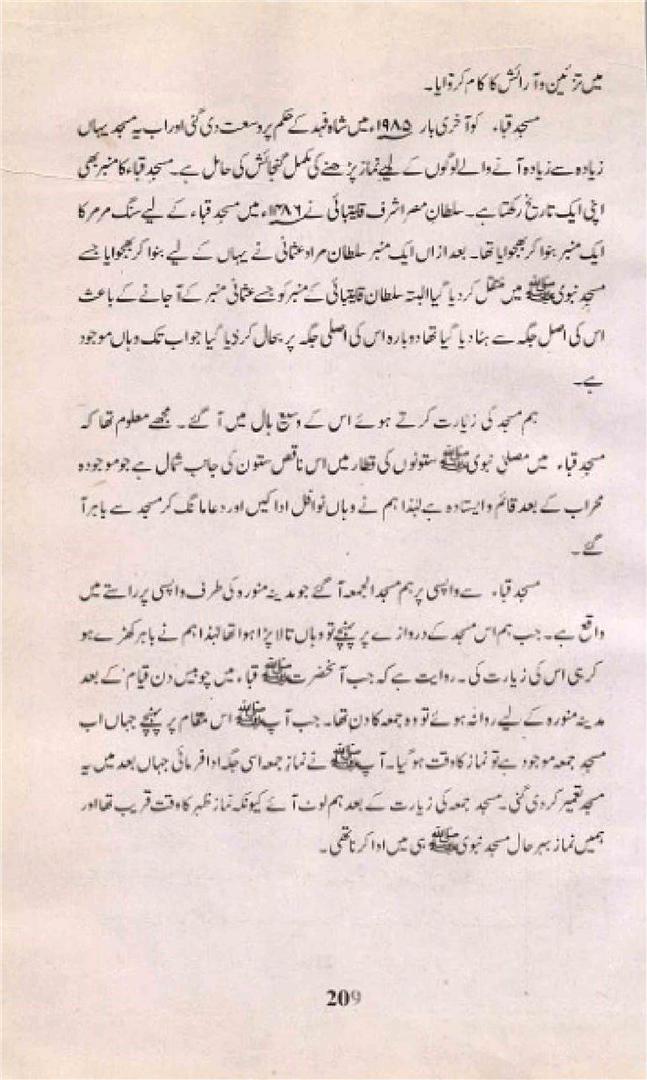 میں تزئین و آرائش کا کام کروایا۔
مسجد قباء کو آخری بار ۱۹۸۵ء میں شاہ فہد کے حکم پر وسعت دی گئی اور اب یہ مسجد یہاں
زیادہ سے زیادہ آنے والے لوگوں کے لیے نماز پڑھنے کی مکمل گنجائش کی حامل ہے۔ مسجد قباء کا منبر بھی
اپنی ایک تاریخ رکھتا ہے۔ سلطان مصر اشرف قایتبائی نے ۱۴۸۶ء میں مسجد قباء کے لیے سنگ مرمر کا
ایک منبر بنوا کر بھجوایا تھا۔ بعد ازاں ایک منبر سلطان مراد عثمانی نے یہاں کے لیے بنوا کر بھجوایا جسے
مسجد نبوی ﷺ میں منتقل کر دیا گیا البتہ سلطان قایتبائی کے منبر کو جسے عثمانی منبر کے آ جانے کے باعث
اس کی اصل جگہ سے ہٹا دیا گیا تھا دوبارہ اس کی اصلی جگہ پر بحال کر دیا گیا جو اب تک وہاں موجود
ہے۔
ہم مسجد کی زیارت کرتے ہوئے اس کے وسیع ہال میں آ گئے۔ مجھے معلوم تھا کہ
مسجد قباء میں مصلیٰ نبوی ﷺ ستونوں کی قطار میں اس ناقص ستون کی جانب شمال ہے جو موجودہ
محراب کے بعد قائم و ایستادہ ہے لہٰذا ہم نے وہاں نوافل ادا کیں اور دعا مانگ کر مسجد سے باہر آ
گئے۔
مسجد قباء سے واپسی پر ہم مسجد الجمعہ آ گئے جو مدینہ منورہ کی طرف واپسی پر راستے میں
واقع ہے۔ جب ہم اس مسجد کے دروازے پر پہنچے تو وہاں تالا پڑا ہوا تھا لہٰذا ہم نے باہر کھڑے ہو
کر ہی اس کی زیارت کی۔ روایت ہے کہ جب آنحضرت ﷺ قباء میں چوبیس دن قیام کے بعد
مدینہ منورہ کے لیے روانہ ہوئے تو وہ جمعہ کا دن تھا۔ جب آپ ﷺ اس مقام پر پہنچے جہاں اب
مسجد جمعہ موجود ہے تو نماز کا وقت ہو گیا۔ آپ ﷺ نے نماز جمعہ اسی جگہ ادا فرمائی جہاں بعد میں یہ
مسجد تعمیر کر دی گئی۔ مسجد جمعہ کی زیارت کے بعد ہم لوٹ آئے کیونکہ نماز ظہر کا وقت قریب تھا اور
ہمیں نماز بہر حال مسجد نبوی ﷺ ہی میں ادا کرنا تھی۔
209